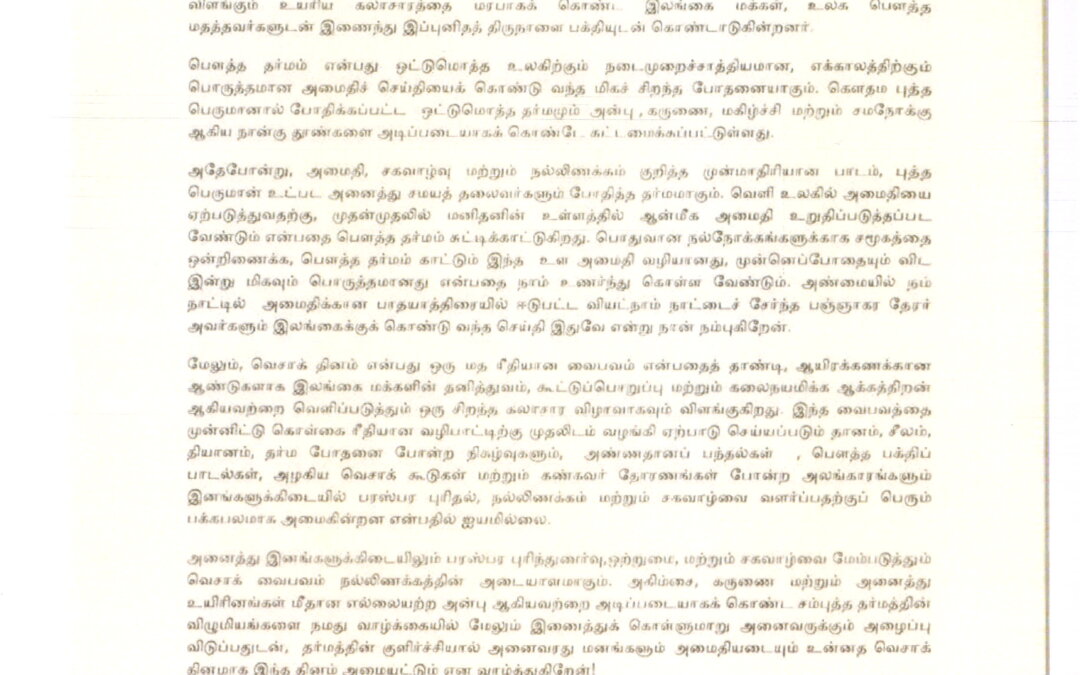 விளங்கும் உயரிய கலாசாரத்தை மரபாகக் கொண்ட இலங்கை மக்கள், உலக பௌத்த
மதத்தவர்களுடன் இணைந்து இப்புனிதத் திருநாளை பக்தியுடன் கொண்டாடுகின்றனர்.
பௌத்த தர்மம் என்பது ஒட்டுமொத்த உலகிற்கும் நடைமுறைச்சாத்தியமான, எக்காலத்திற்கும்
பொருத்தமான அமைதிச் செய்தியைக் கொண்டு வந்த மிகச் சிறந்த போதனையாகும். கௌதம புத்த
பெருமானால் போதிக்கப்பட்ட ஒட்டுமொத்த தர்மமும் அன்பு , கருணை, மகிழ்ச்சி மற்றும் சமநோக்கு
ஆகிய நான்கு தூண்களை அடிப்படையாகக் கொண்டே கட்டமைக்கப்பட்டுள்ளது.
அதேபோன்று, அமைதி, சகவாழ்வு மற்றும் நல்லிணக்கம் குறித்த முன்மாதிரியான பாடம், புத்த
பெருமான் உட்பட அனைத்து சமயத் தலைவர்களும் போதித்த தர்மமாகும். வெளி உலகில் அமைதியை
ஏற்படுத்துவதற்கு, முதன்முதலில் மனிதனின் உள்ளத்தில் ஆன்மீக அமைதி உறுதிப்படுத்தப்பட
வேண்டும் என்பதை பௌத்த தர்மம் சுட்டிக்காட்டுகிறது. பொதுவான நல்நோக்கங்களுக்காக சமூகத்தை
ஒன்றிணைக்க, பௌத்த தர்மம் காட்டும் இந்த உள அமைதி வழியானது, முன்னெப்போதையும் விட
இன்று மிகவும் பொருத்தமானது என்பதை நாம் உணர்ந்து கொள்ள வேண்டும். அண்மையில் நம்
நாட்டில் அமைதிக்கான பாதயாத்திரையில் ஈடுபட்ட வியட்நாம் நாட்டைச் சேர்ந்த பஞ்ஞாகர தேரர்
அவர்களும் இலங்கைக்குக் கொண்டு வந்த செய்தி இதுவே என்று நான் நம்புகிறேன்.
மேலும், வெசாக் தினம் என்பது ஒரு மத ரீதியான வைபவம் என்பதைத் தாண்டி, ஆயிரக்கணக்கான
ஆண்டுகளாக இலங்கை மக்களின் தனித்துவம், கூட்டுப்பொறுப்பு மற்றும் கலைநயமிக்க ஆக்கத்திறன்
ஆகியவற்றை வெளிப்படுத்தும் ஒரு சிறந்த கலாசார விழாவாகவும் விளங்குகிறது. இந்த வைபவத்தை
முன்னிட்டு கொள்கை ரீதியான வழிபாட்டிற்கு முதலிடம் வழங்கி ஏற்பாடு செய்யப்படும் தானம், சீலம்,
தியானம், தர்ம போதனை போன்ற நிகழ்வுகளும், அன்னதானப் பந்தல்கள் , பௌத்த பக்திப்
பாடல்கள், அழகிய வெசாக் கூடுகள் மற்றும் கண்கவர் தோரணங்கள் போன்ற அலங்காரங்களும்
இனங்களுக்கிடையில் பரஸ்பர புரிதல், நல்லிணக்கம் மற்றும் சகவாழ்வை வளர்ப்பதற்குப் பெரும்
பக்கபலமாக அமைகின்றன என்பதில் ஐயமில்லை.
அனைத்து இனங்களுக்கிடையிலும் பரஸ்பர புரிந்துணர்வு,ஒற்றுமை, மற்றும் சகவாழ்வை மேம்படுத்தும்
வெசாக் வைபவம் நல்லிணக்கத்தின் அடையாளமாகும். அகிம்சை, கருணை மற்றும் அனைத்து
உயிரினங்கள் மீதான எல்லையற்ற அன்பு ஆகியவற்றை அடிப்படையாகக் கொண்ட சம்புத்த தர்மத்தின்
விழுமியங்களை நமது வாழ்க்கையில் மேலும் இணைத்துக் கொள்ளுமாறு அனைவருக்கும் அழைப்பு
விடுப்பதுடன், தர்மத்தின் குளிர்ச்சியால் அனைவரது மனங்களும் அமைதியடையும் உன்னத வெசாக்
தினமாக இந்த தினம் அமையட்டும் என வாழ்த்துகிறேன்!